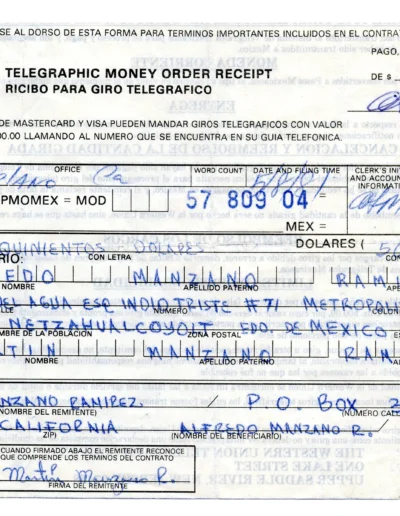 SE AL DORSO DE ESTA FORMA PARA TERMINOS IMPORTANTES INCLUIDOS EN EL CONTRAT
PAGO,
TELEGRAPHIC MONEY ORDER RECEIPT
RICIBO PARA GIRO TELEGRAFICO
DE $
DE MASTERCARD Y VISA PUEDEN MANDAR GIROS TELEGRAFICOS CON VALOR
00.00 LLAMANDO AL NUMERO QUE SE ENCUENTRA EN SU GUIA TELEFONICA.
OFFICE WORD COUNT DATE AND FILING TIME CLERK'S INIT
AND ACCOUNT
INFORMATI
Ca
PMOMEX = MOD 57 809 04 =
MEX =
QUINIENTOS DOLARES DOLARES (
RIO: CON LETRA CON
EDO MANZANO RAMI
NOMBRE APELLIDO PATERNO
DEL AGUA ESQ INDIO TRISTE # 71 METROPOLI
LLE NUMERO COLONI
NETZAHUALCOYOLT EDO. DE MEXICO
MBRE DE LA POBLACION ZONA POSTAL ES
TIN MANZANO RAM
NOMBRE APELLIDO PATERNO
NZANO RAMIREZ. / P. O. BOX
NOMBRE DEL REMITENTE) (NUMERO CALL
CALIFORNIA ALFREDO MANZANO R. /
ZIP) (NOMBRE DEL BENEFICIARIO)
CUANDO FIRMADO ABAJO EL REMITENTE RECONOCE
QUE COMPRENDE LOS TERMINOS DEL CONTRATO
Martin Manzano R.
FIRMA DEL REMITENTE
THE WESTERN UNION
ONE LAKE STREET
UPPER SADDLE RIVER, NE